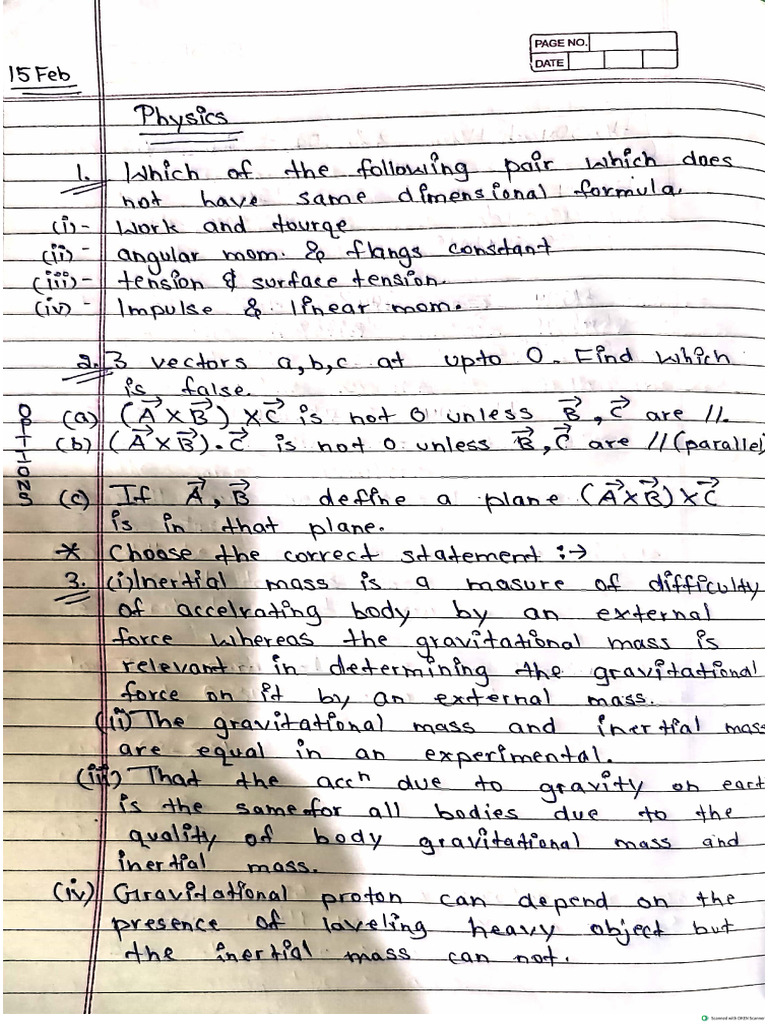 PAGE NO.
DATE
15 Feb
Physics
1. Which of the following pair which does
not have same dimensional formula.
(i) - Work and tourqe
(ii) - angular mom. & flangs constant
(iii) - tension & surface tension.
(iv) - Impulse & linear mom.
2. 3 vectors a,b,c at upto 0. Find which
is false.
OPTIONS
(a) (A⃗ × B⃗) × C⃗ is not 0 unless B⃗, C⃗ are //.
(b) (A⃗ × B⃗) . C⃗ is not 0 unless B⃗, C⃗ are // (parallel)
(c) If A⃗, B⃗ define a plane (A⃗ × B⃗) × C⃗
is in that plane.
* Choose the correct statement :→
3. (i) Inertial mass is a masure of difficulty
of accelrating body by an external
force whereas the gravitational mass is
relevant in determining the gravitational
force on it by an external mass.
(ii) The gravitational mass and inertial mass
are equal in an experimental.
(iii) That the accⁿ due to gravity on eart
is the same for all bodies due to the
quality of body gravitational mass and
inertial mass.
(iv) Gravitational proton can depend on the
presence of laveling heavy object but
the inertial mass can not.
Scanned with OKEN Scanner